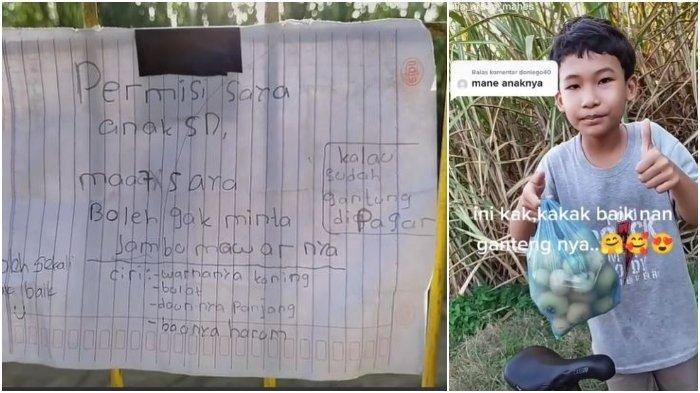 Permisi saya
anak SD,
maaf saya
Boleh gak minta
Jambu mawar nya
ciri:-warnanya kuning
-bulat
-daunnya panjang
-baonya harom
kalau
sudah
gantung
di Pagar
sekali
baik
Balas komentar doniego40
mane anaknya
ini kak,kakak baik nan
ganteng nya..🤗🥰😍